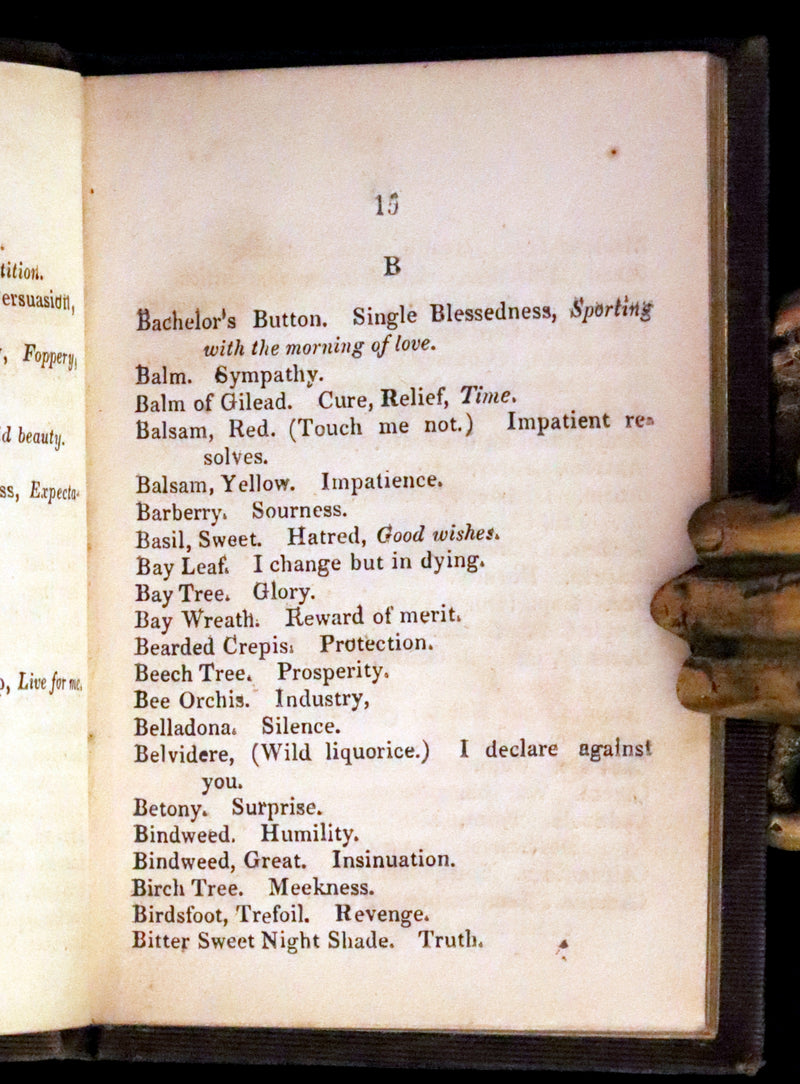 tition.
ersuasion,
, Foppery,
d beauty.
ss, Expecta-
, Live for me.
15
B
Bachelor's Button. Single Blessedness, Sporting
with the morning of love.
Balm. Sympathy.
Balm of Gilead. Cure, Relief, Time.
Balsam, Red. (Touch me not.) Impatient re-
solves.
Balsam, Yellow. Impatience.
Barberry. Sourness.
Basil, Sweet. Hatred, Good wishes.
Bay Leaf. I change but in dying.
Bay Tree. Glory.
Bay Wreath. Reward of merit.
Bearded Crepis. Protection.
Beech Tree. Prosperity.
Bee Orchis. Industry,
Belladona. Silence.
Belvidere, (Wild liquorice.) I declare against
you.
Betony. Surprise.
Bindweed. Humility.
Bindweed, Great. Insinuation.
Birch Tree. Meekness.
Birdsfoot, Trefoil. Revenge.
Bitter Sweet Night Shade. Truth.